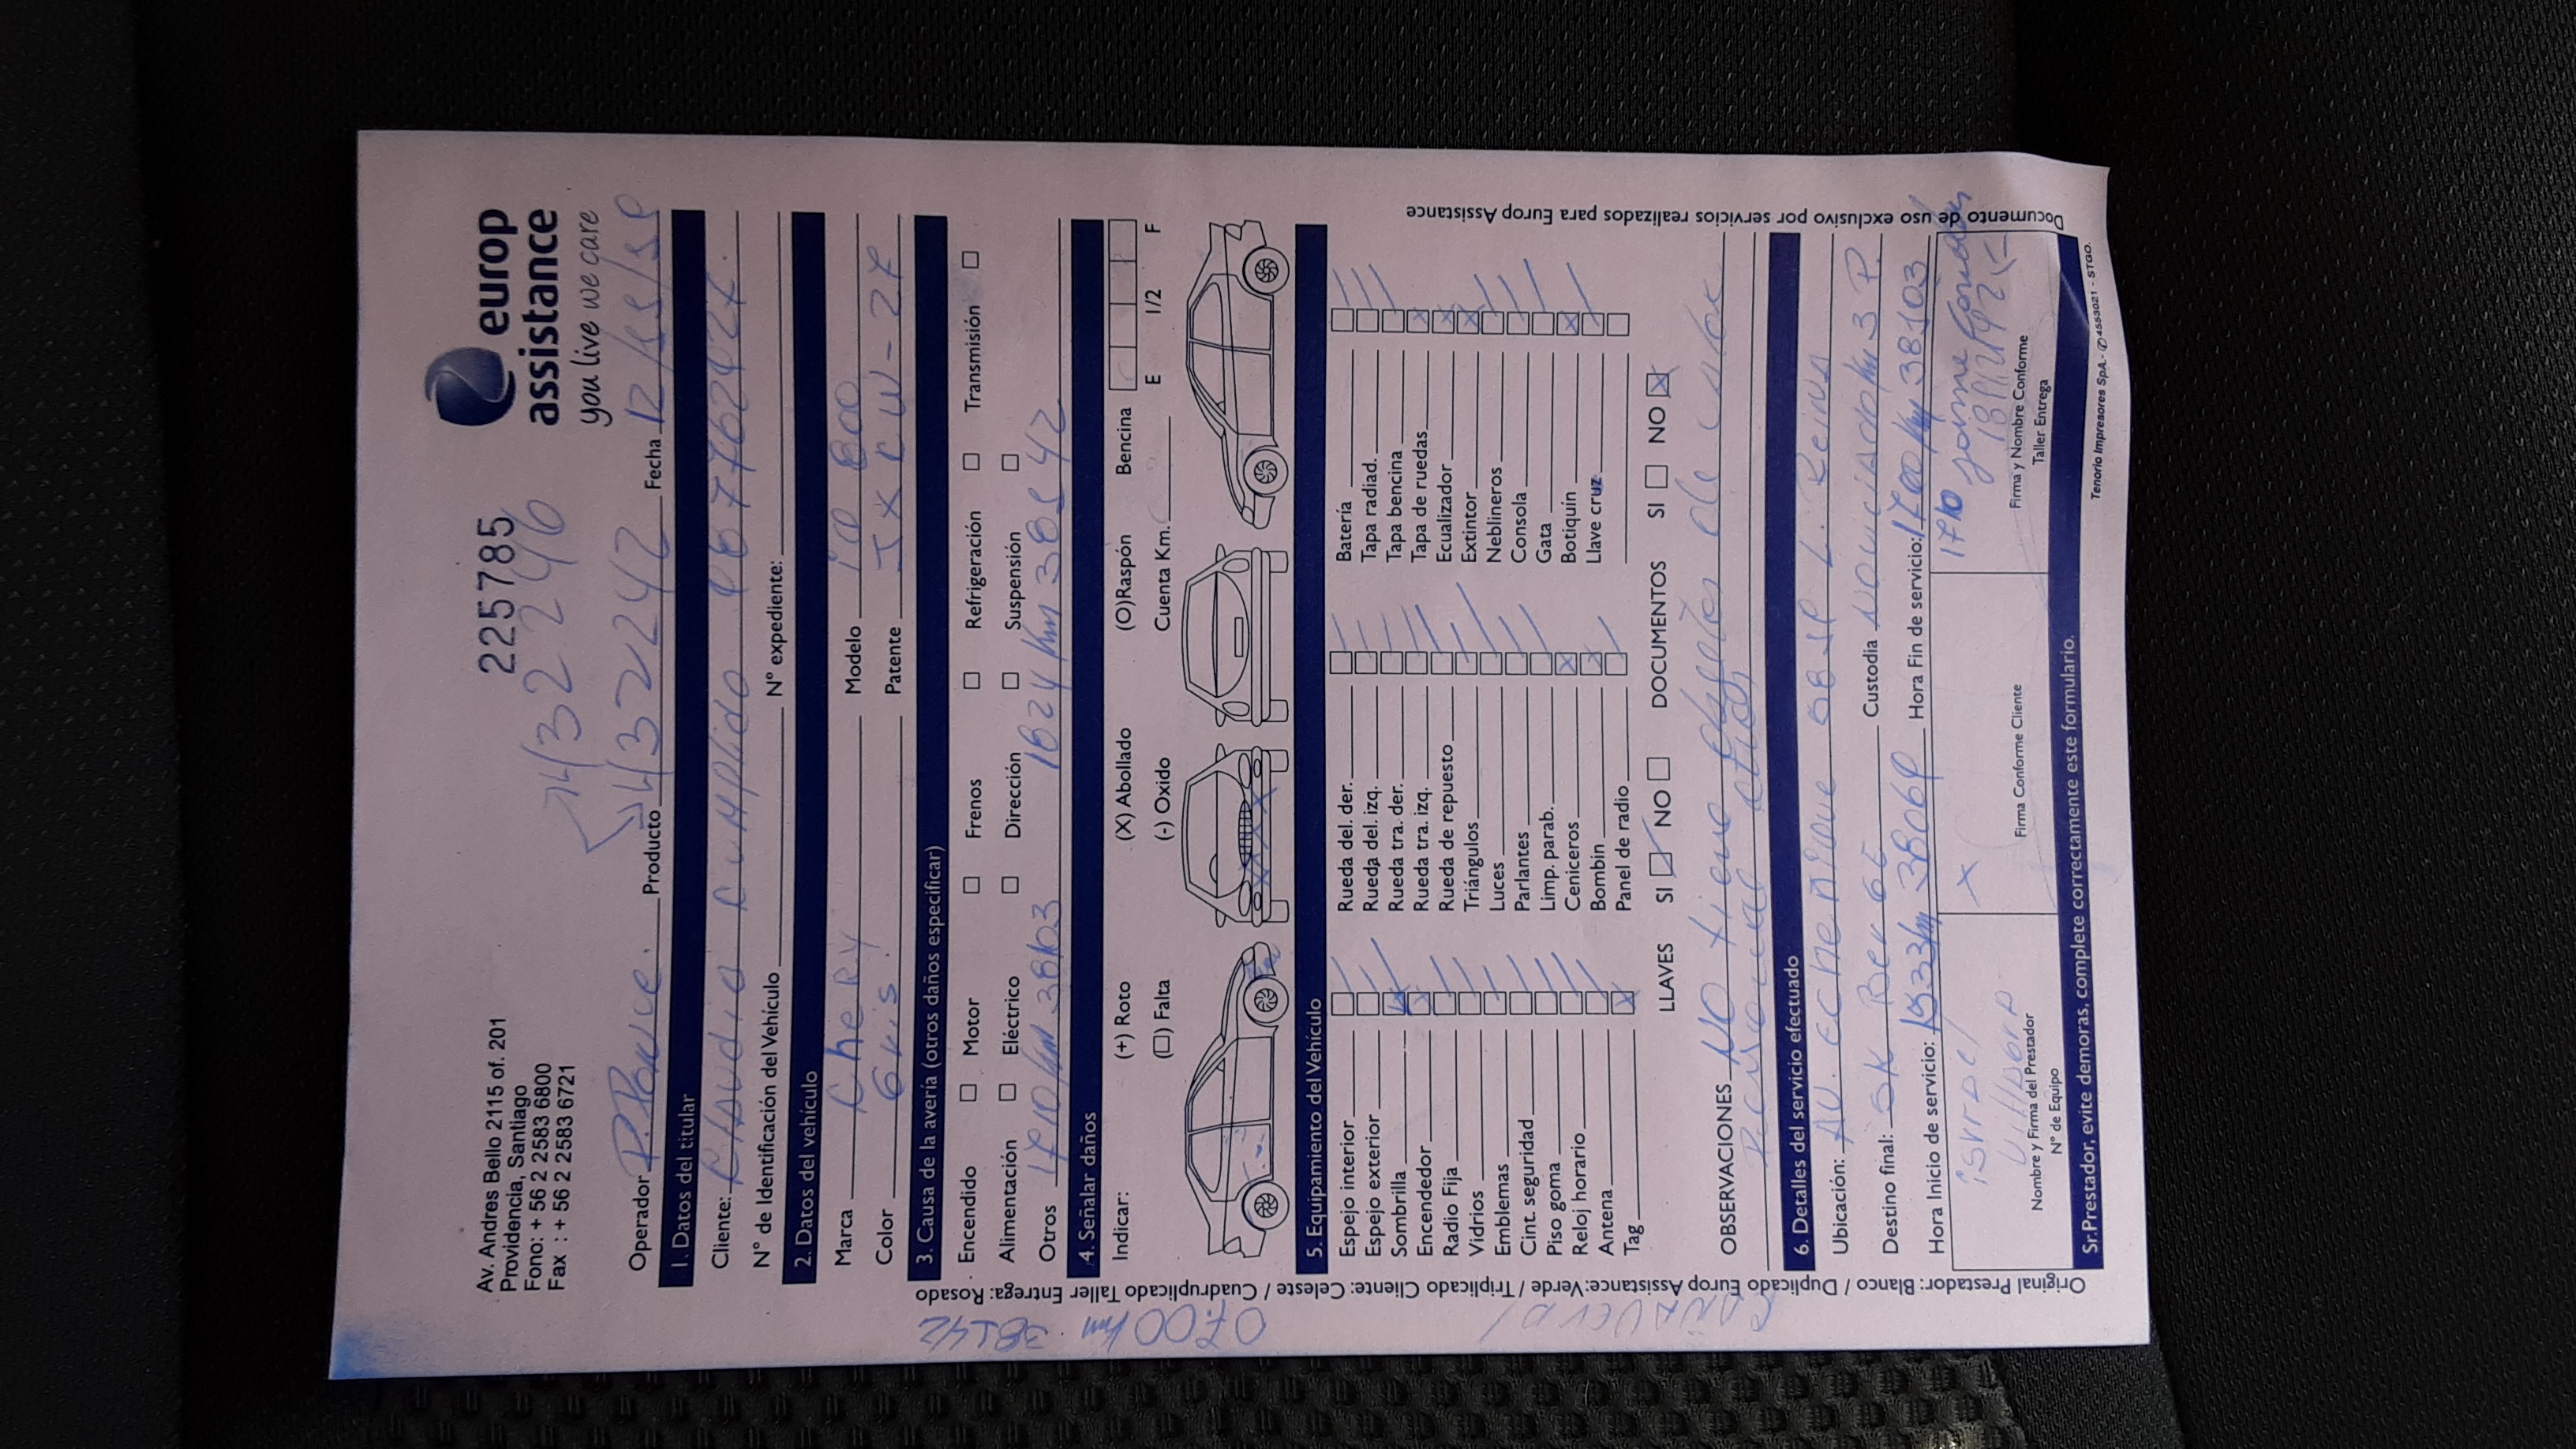 Av. Andres Bello 2115 of. 201
Providencia, Santiago
Fono: + 56 2 2583 6800
Fax : + 56 2 2583 6721
225785
europ
assistance
you live we care
4322246
Operador P. Ponce. Producto 4322242 Fecha 12
1. Datos del titular
Cliente: Claudio Cumplido
N° de Identificación del Vehículo N° expediente:
2. Datos del vehículo
Marca Chery Modelo
Color Gris. Patente JXCW-27
3. Causa de la avería (otros daños especificar)
Encendido Motor Frenos Refrigeración Transmisión
Alimentación Eléctrico Dirección Suspensión
Otros 1710 km 38103 1824 km 38542
4. Señalar daños
Indicar: (+) Roto (X) Abollado (O)Raspón Bencina E 1/2 F
(□) Falta (-) Oxido Cuenta Km.
5. Equipamiento del Vehículo
Espejo interior Rueda del. der. Batería
Espejo exterior Rueda del. izq. Tapa radiad.
Sombrilla Rueda tra. der. Tapa bencina
Encendedor Rueda tra. izq. Tapa de ruedas
Radio Fija Rueda de repuesto Ecualizador
Vidrios Triángulos Extintor
Emblemas Luces Neblineros
Cint. seguridad Parlantes Consola
Piso goma Limp. parab. Gata
Reloj horario Ceniceros Botiquín
Antena Bombin Llave cruz
Tag Panel de radio
LLAVES SI NO DOCUMENTOS SI NO
OBSERVACIONES NO tiene de
6. Detalles del servicio efectuado
Ubicación: AV. L. Reina
Destino final: Custodia Noviciado km 3 P.
Hora Inicio de servicio: 1533 km 38069 Hora Fin de servicio: 1700 km 38103
1710
israel
Jaime
Nombre y Firma del Prestador
N° de Equipo
X
Firma Conforme Cliente
Firma y Nombre Conforme
Taller Entrega
Sr.Prestador, evite demoras, complete correctamente este formulario.
Tenorio Impresores SpA.- ✆ 4553021 - STGO.
Original Prestador: Blanco / Duplicado Europ Assistance: Verde / Triplicado Cliente: Celeste / Cuadruplicado Taller Entrega: Rosado
Documento de uso exclusivo por servicios realizados para Europ Assistance